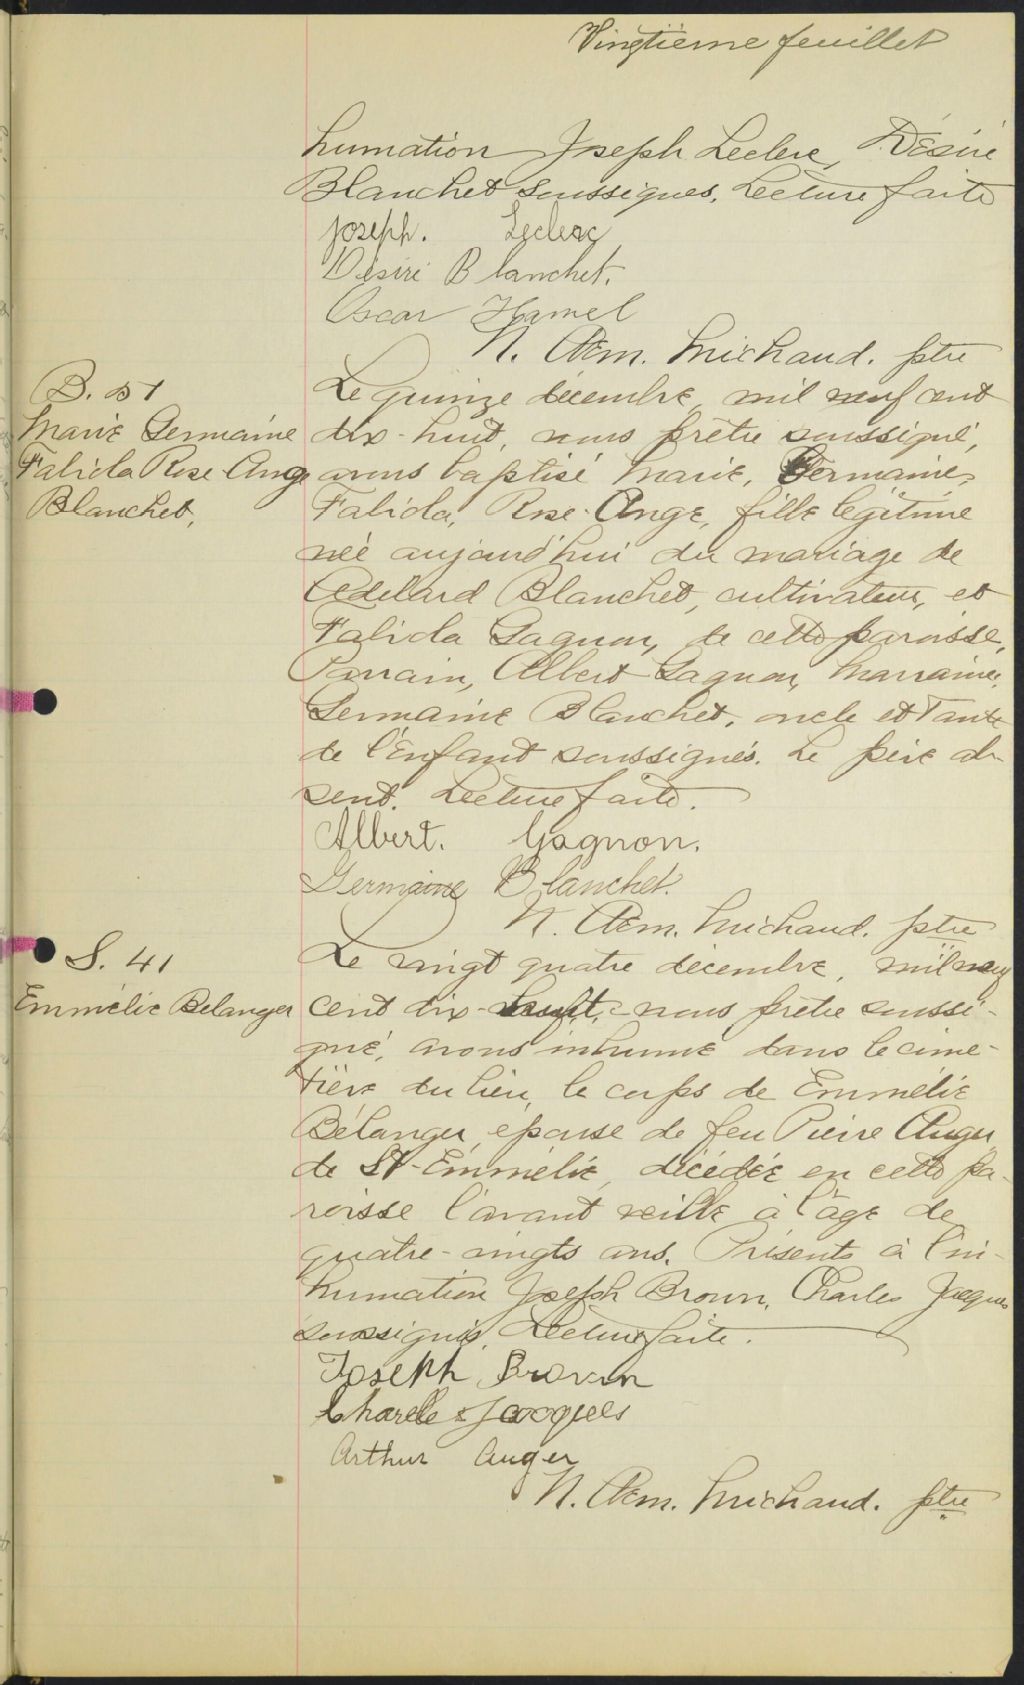 Vingtième feuillet
humation Joseph Leclerc, Désiré
Blanchet soussignés. Lecture faite
Joseph. Leclerc
Désiré Blanchet.
Oscar Hamel
N. Aém. Michaud. ptre
B. 51
Marie Germaine
Falida Rose Ange
Blanchet,
Le quinze décembre mil neuf cent
dix-huit, nous prêtre soussigné,
avons baptisé Marie, Germaine,
Falida, Rose-Ange, fille légitime
née aujourd'hui du mariage de
Adélard Blanchet, cultivateur, et
Falida Gagnon, de cette paroisse.
Parrain, Albert Gagnon, Marraine,
Germaine Blanchet, oncle et Tante
de l'Enfant soussignés. Le père ab-
sent. Lecture faite.
Albert. Gagnon.
Germaine Blanchet.
N. Aém. Michaud. ptre
S. 41
Emmélie Belanger
Le vingt quatre décembre, mil neuf
cent dix-huit, nous prêtre soussi-
gné, avons inhumé dans le cime-
tière du lieu, le corps de Emmélie
Bélanger, epouse de feu Pierre Auger
de St-Emmélie, décédée en cette pa-
roisse l'avant veille à l'âge de
quatre-vingts ans. Présents à l'in-
humation Joseph Brown, Charles Jacques
soussignés. Lecture faite.
Joseph Brown
Charles Jacques
Arthur Auger
N. Aém. Michaud. ptre